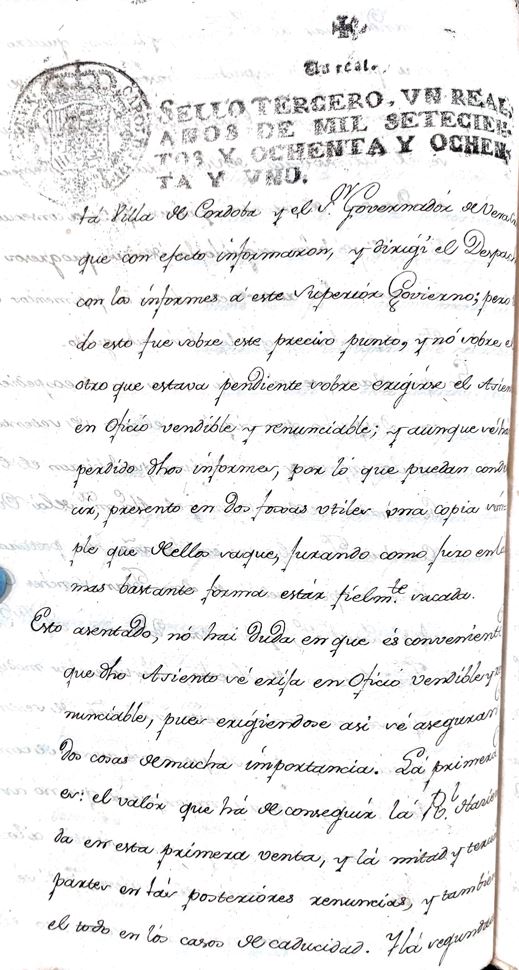 Un real.
SELLO TERCERO, VN REAL,
AÑOS DE MIL SETECIEN-
TOS Y OCHENTA Y OCHEN-
TA Y VNO.
ta Villa de Cordoba y el S.or Governador de
que con efecto informaron, y dirigi el Despac
con los informes a este Superior Govierno; pero
do esto fue sobre este preciso punto, y nó sobre e
otro que estava pendiente sobre exigirse el Asien
en Oficio vendible y renunciable; y aunque sé há
perdido dhos informes, por ló que puedan condu
cir, presento en dos foxas utiles una copia sim
ple que dellos saque, jurando como juro en la
mas bastante forma estár fielm.te sacada.
Esto asentado, nó hai duda en que és convenient
que dho Asiento sé exija en Oficio vendible y re
nunciable, pues exigiendose asi sé aseguran
dos cosas de mucha importancia. La primera
es: el valór que há de conseguir lá R.l Hacien
da en esta primera venta, y lá mitad y tercia
partes en las posteriores renuncias, y tambien
el todo en lós casos de caducidad. Y lá segunda